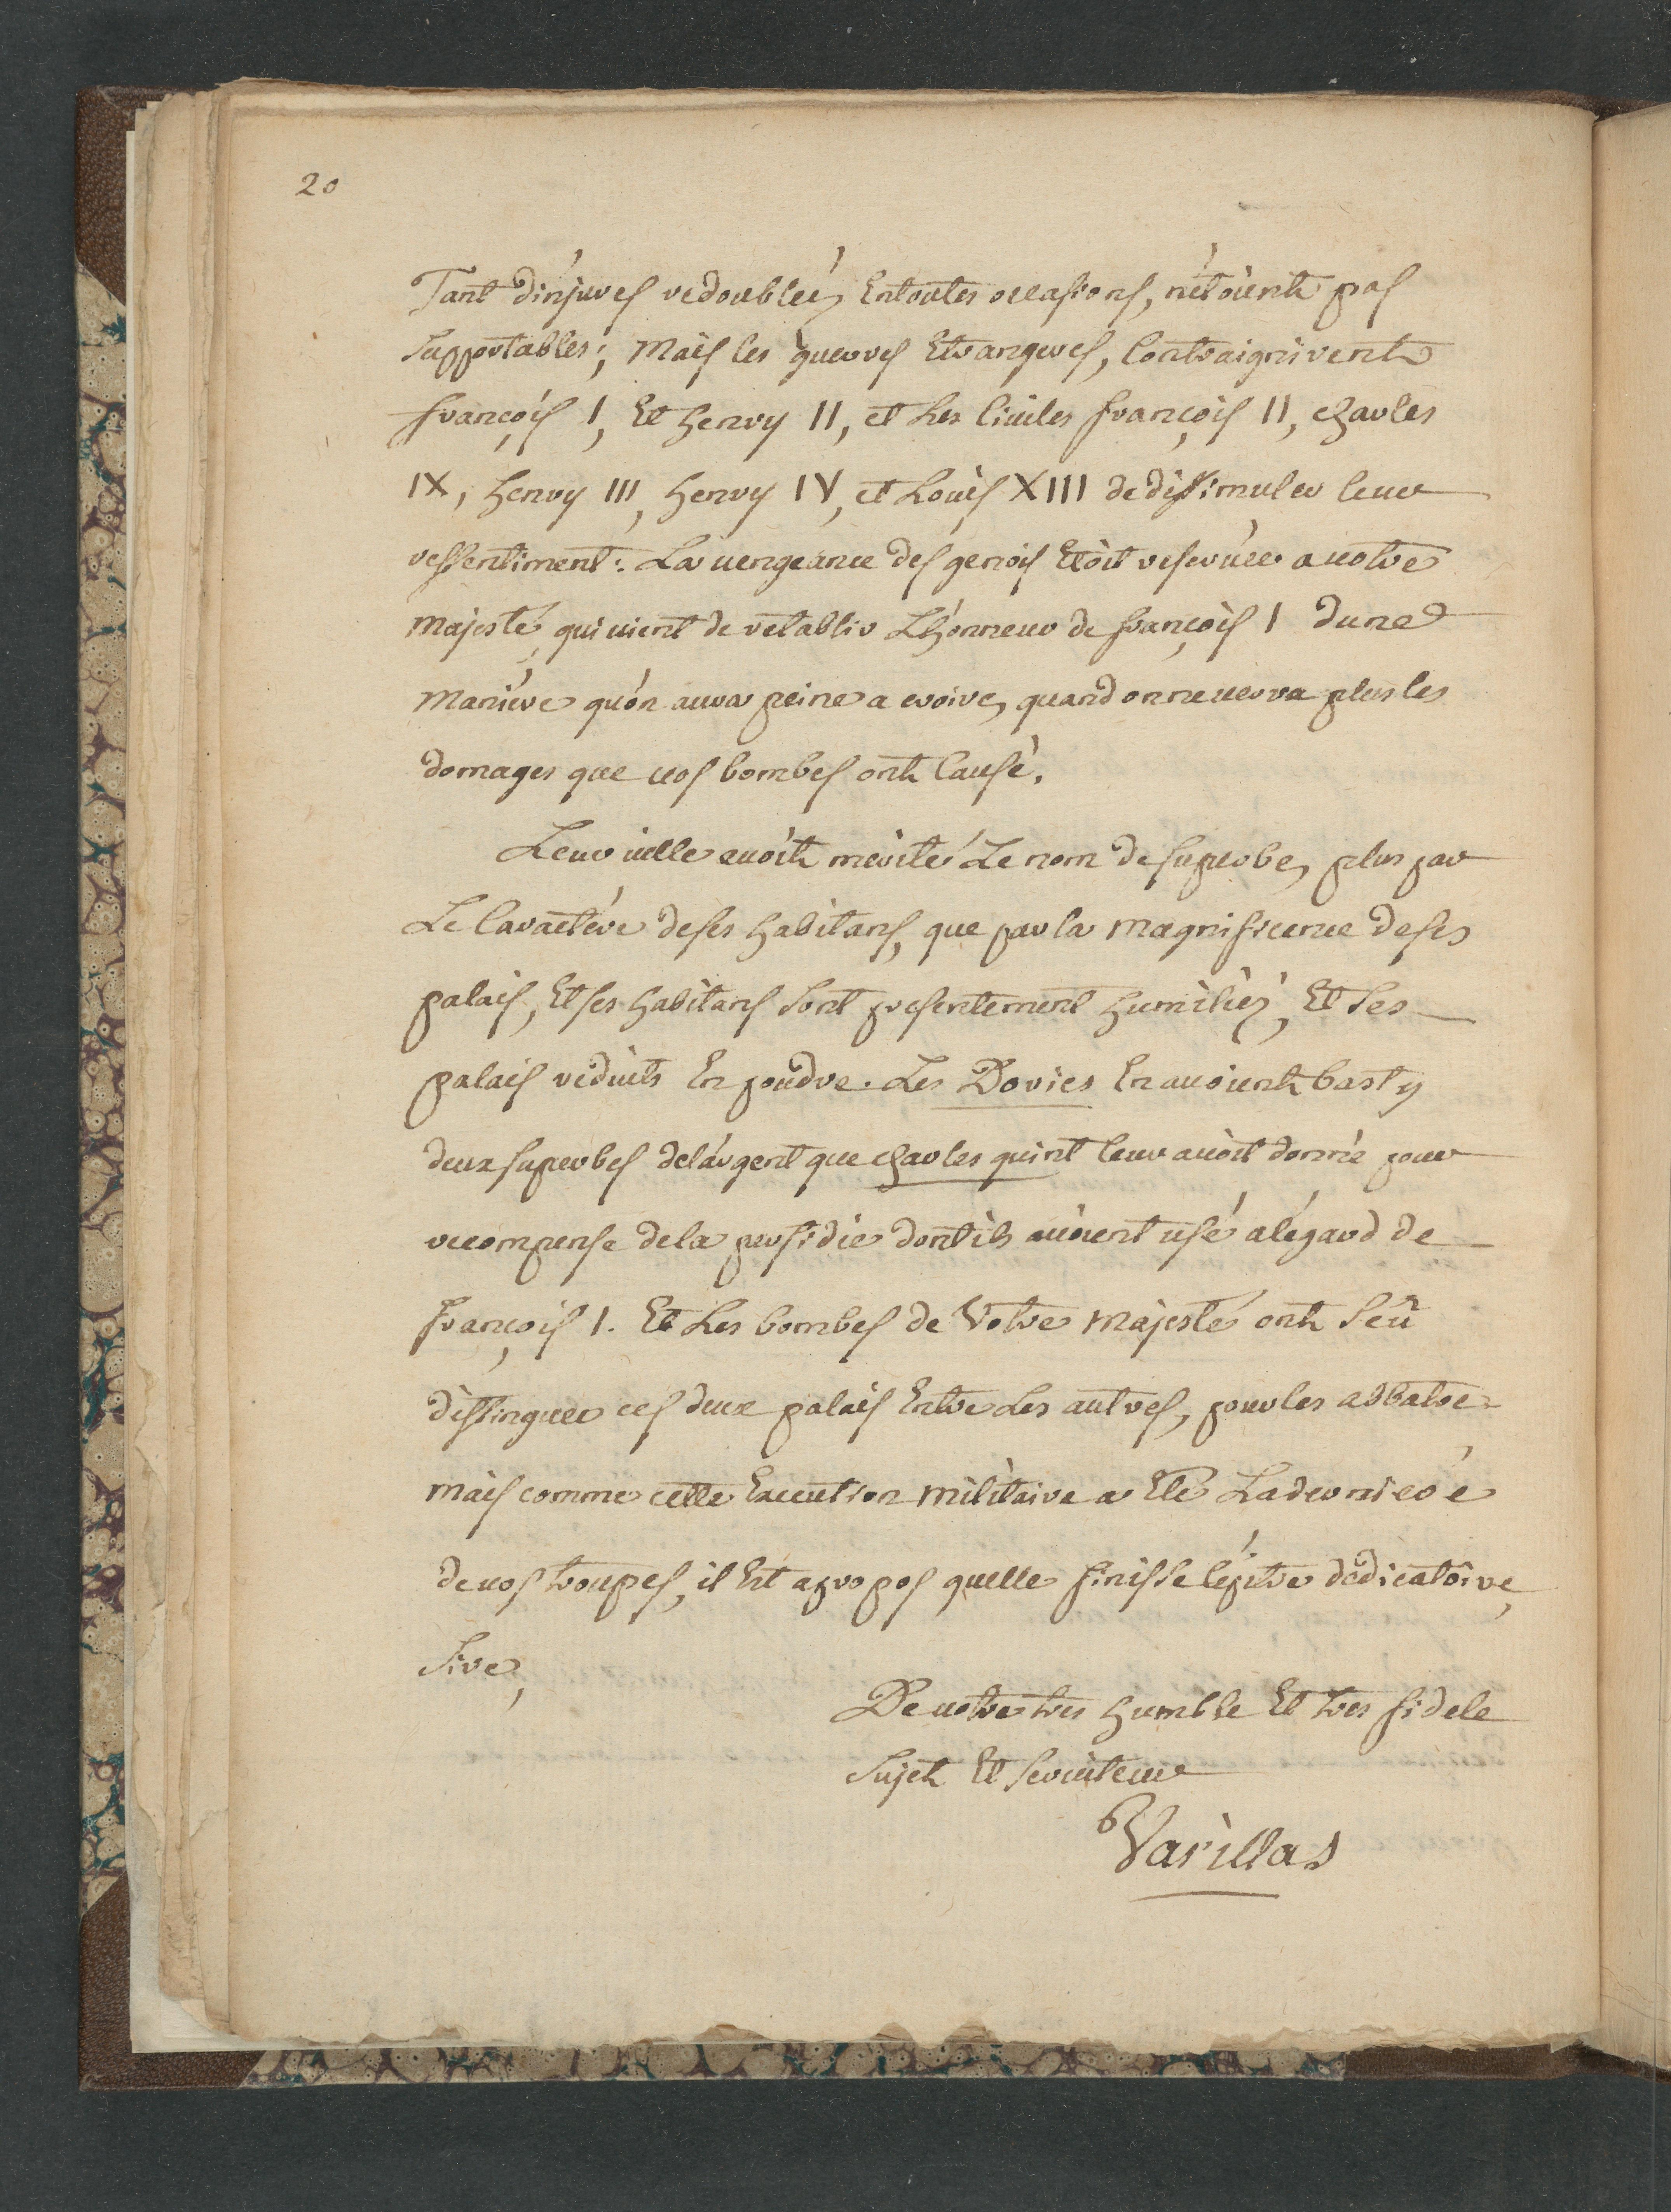 20
Tant d'injures redoubleés Entoutes occasions, n'etoient pas
Supportables; Mais les guerres Etrangeres, Contraignirent
françois I, Et henry II, et Les Ciuiles françois II, charles
IX, henry III, henry IV, et Louis XIII de dissimuler leur
ressentiment. La uengeance des genois Etoit reseruée a uotre
majesté, qui uient de retablir L'honneur de françois I dune
Maniére qu'on aura peine a croire, quand onneuerra plus les
domages que uos bombes ont Causé.
Leur uille auoit merité Le nom de superbe, plus par
Le Caractére deses habitans, que par la magnificence deses
palais, Et ses habitans sont presentement humiliés, Et Ses
palais reduits En poudre. Les Dories En auoient basty
deux superbes del'argent que charles quint leur auoit donné pour
recompense dela perfidie dont ils auoient usé alégard de
François I. Et Les bombes de Votre Majesté ont Seû
distinguer ces deux palais Entre Les autres, pour les abbatre
mais comme cette Execution militaire a Eté Laderniere
deuos troupes, il Est apropos quelle finisse l'epitre dédicatoire,
Sire,
De uotre tres humble Et tres fidele
Sujet Et Seruiteur
Varillas